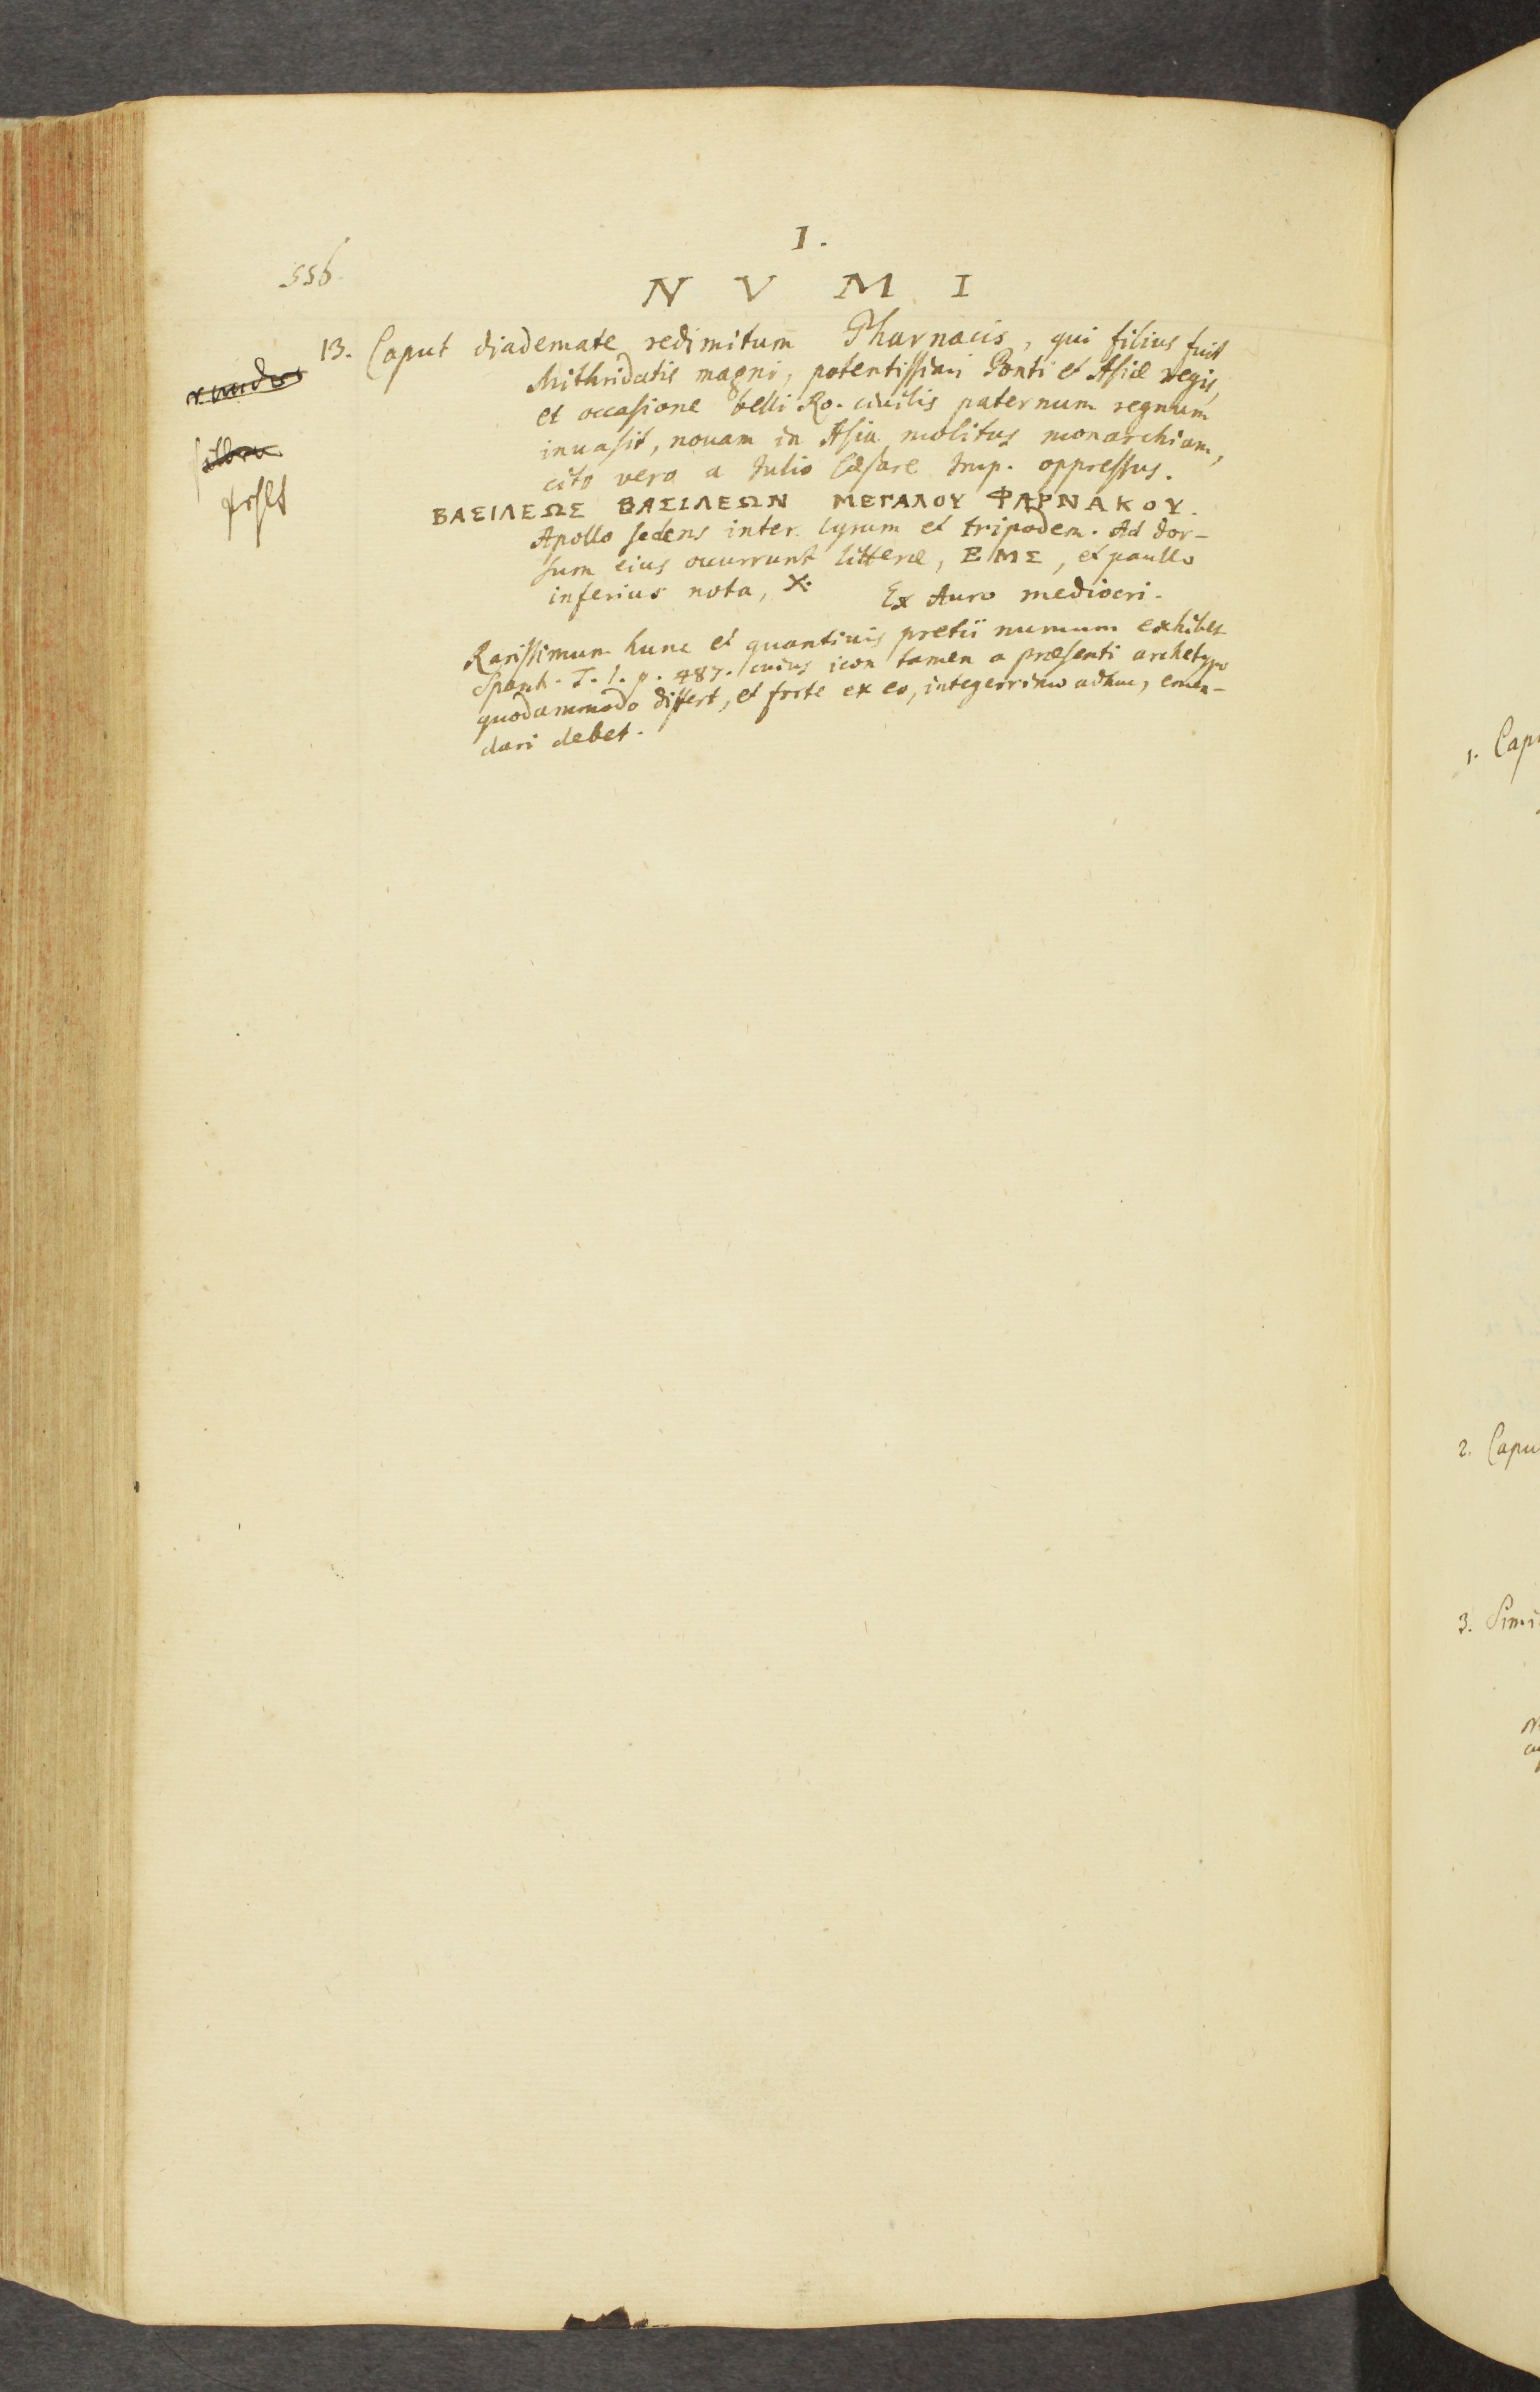 I.
556.
N V M I
13. Caput diademate redimitum Pharnacis, qui filius fuit
Mithridatis magni, potentissimi Ponti et Asiæ regis,
et occasione belli Ro. civilis paternum regnum
inuasit, nouam in Asia molitus monarchiam,
cito vero a Iulio Cæsare Imp. oppressus.
ΒΑΣΙΛΕΩΣ ΒΑΣΙΛΕΩΝ ΜΕΓΑΛΟΥ ΦΑΡΝΑΚΟΥ.
Apollo sedens inter lyram et tripodem. Ad dor-
sum eius occurrunt litteræ, ΕΜΣ, et paullo
inferius nota, X: Ex Auro mediocri.
Rarissimum hunc et quantiuis pretii numum exhibet
Spanh. T. I. p. 487. cuius icon tamen a præsenti archetypo
quodammodo differt, et forte ex eo, integerrimo adhuc, emen-
dari debet.
1.
2. Capu
3. Simi